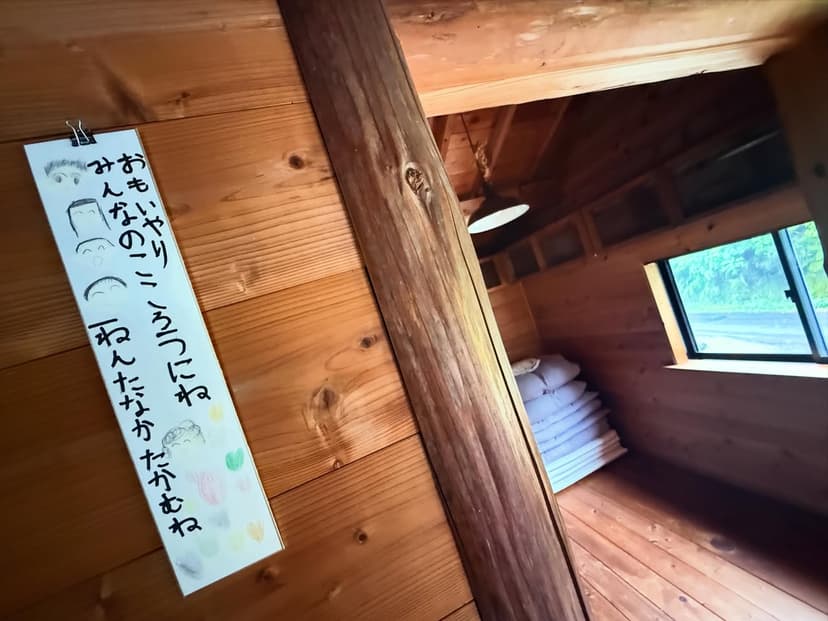 おもいやり
みんなのこころつにね
一ねんたなかたかむね